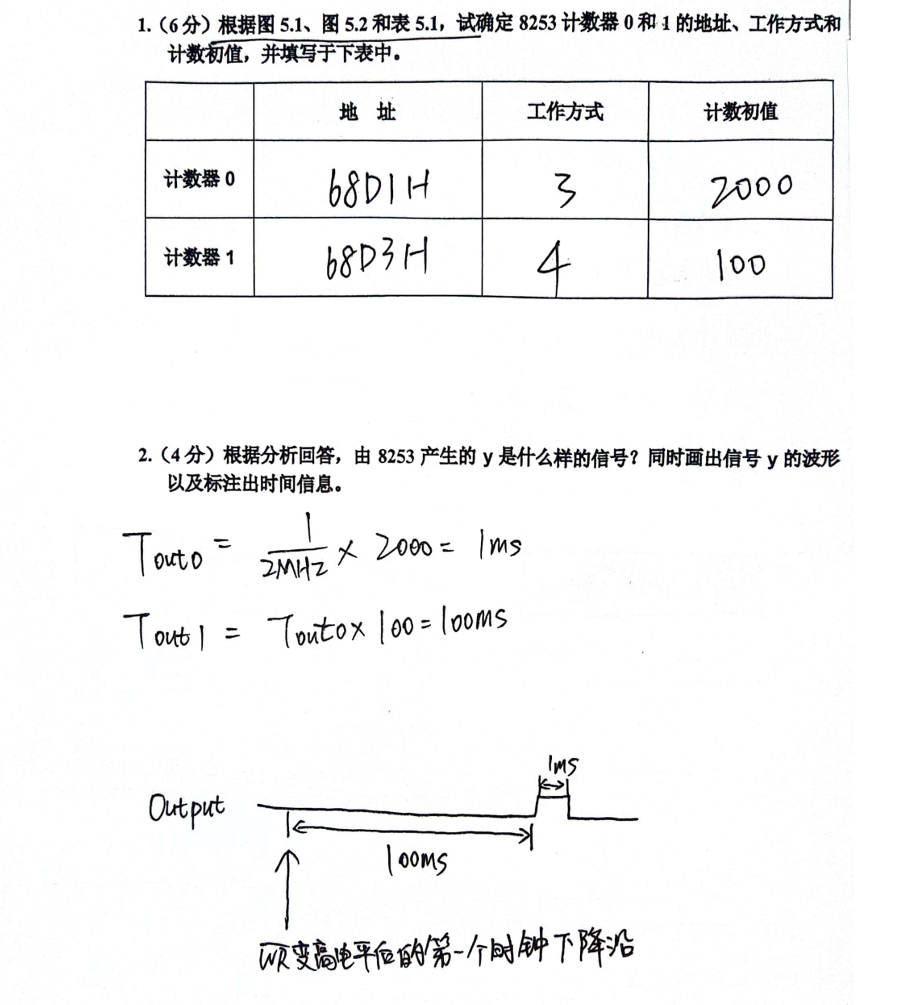 1.（6分）根据图 5.1、图 5.2 和表 5.1，试确定 8253 计数器 0 和 1 的地址、工作方式和
计数初值，并填写于下表中。
地 址 工作方式 计数初值
计数器 0 68D1H 3 2000
计数器 1 68D3H 4 100
2.（4分）根据分析回答，由 8253 产生的 y 是什么样的信号？同时画出信号 y 的波形
以及标注出时间信息。
Tout0 = 1/2MHz × 2000 = 1ms
Tout1 = Tout0 × 100 = 100ms
1ms
Output
100ms
WR变高电平后的第一个时钟下降沿